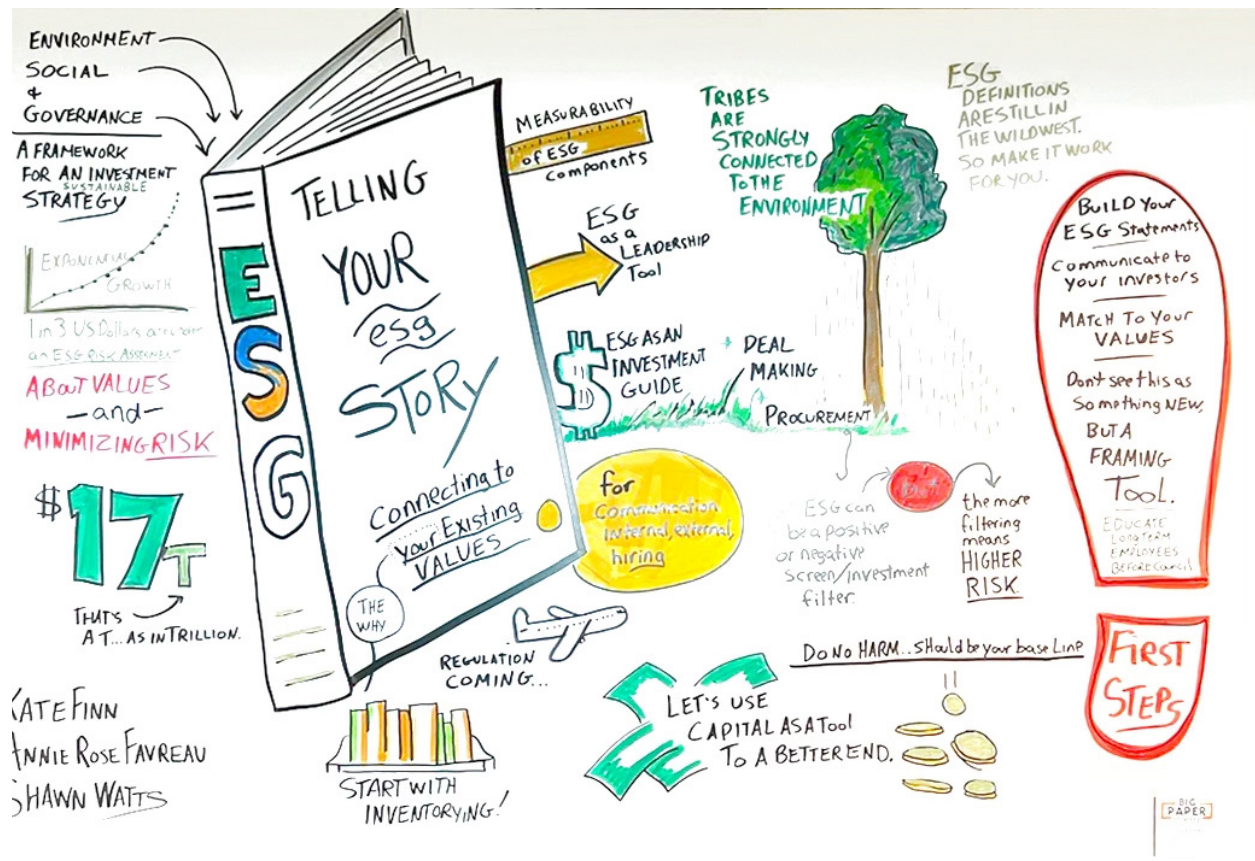 ENVIRONMENT
SOCIAL
&
GOVERNANCE
A FRAMEWORK
FOR AN INVESTMENT
SUSTAINABLE
STRATEGY
EXPONENTIAL
GROWTH
1 in 3 US Dollars are under
an ESG RISK ASSESSMENT
ABOUT VALUES
-and-
MINIMIZING RISK
$17T
THAT'S
A T... AS IN TRILLION.
KATE FINN
ANNIE ROSE FAVREAU
SHAWN WATTS
ESG
TELLING
YOUR
esg
STORY
Connecting to
your Existing
VALUES
THE
WHY
START WITH
INVENTORYING!
MEASURABILITY
of ESG
Components
ESG
as a
LEADERSHIP
Tool
$
ESG AS AN
INVESTMENT
GUIDE
+ DEAL
MAKING
+ PROCUREMENT
for
Communication
internal, external,
hiring
REGULATION
COMING...
TRIBES
ARE
STRONGLY
CONNECTED
TO THE
ENVIRONMENT
ESG
DEFINITIONS
ARE STILL IN
THE WILD WEST.
SO MAKE IT WORK
FOR YOU.
ESG can
be a positive
or negative
screen/investment
filter.
but
the more
filtering
means
HIGHER
RISK.
DO NO HARM... should be your base line
LET'S USE
CAPITAL AS A Tool
To A BETTER END.
BUILD Your
ESG Statements
Communicate to
your investors
MATCH TO YOUR
VALUES
Don't see this as
Something NEW,
BUT A
FRAMING
TOOL.
EDUCATE
LONGTERM
EMPLOYEES
BEFORE Council
FIRST
STEPS
BIG
PAPER